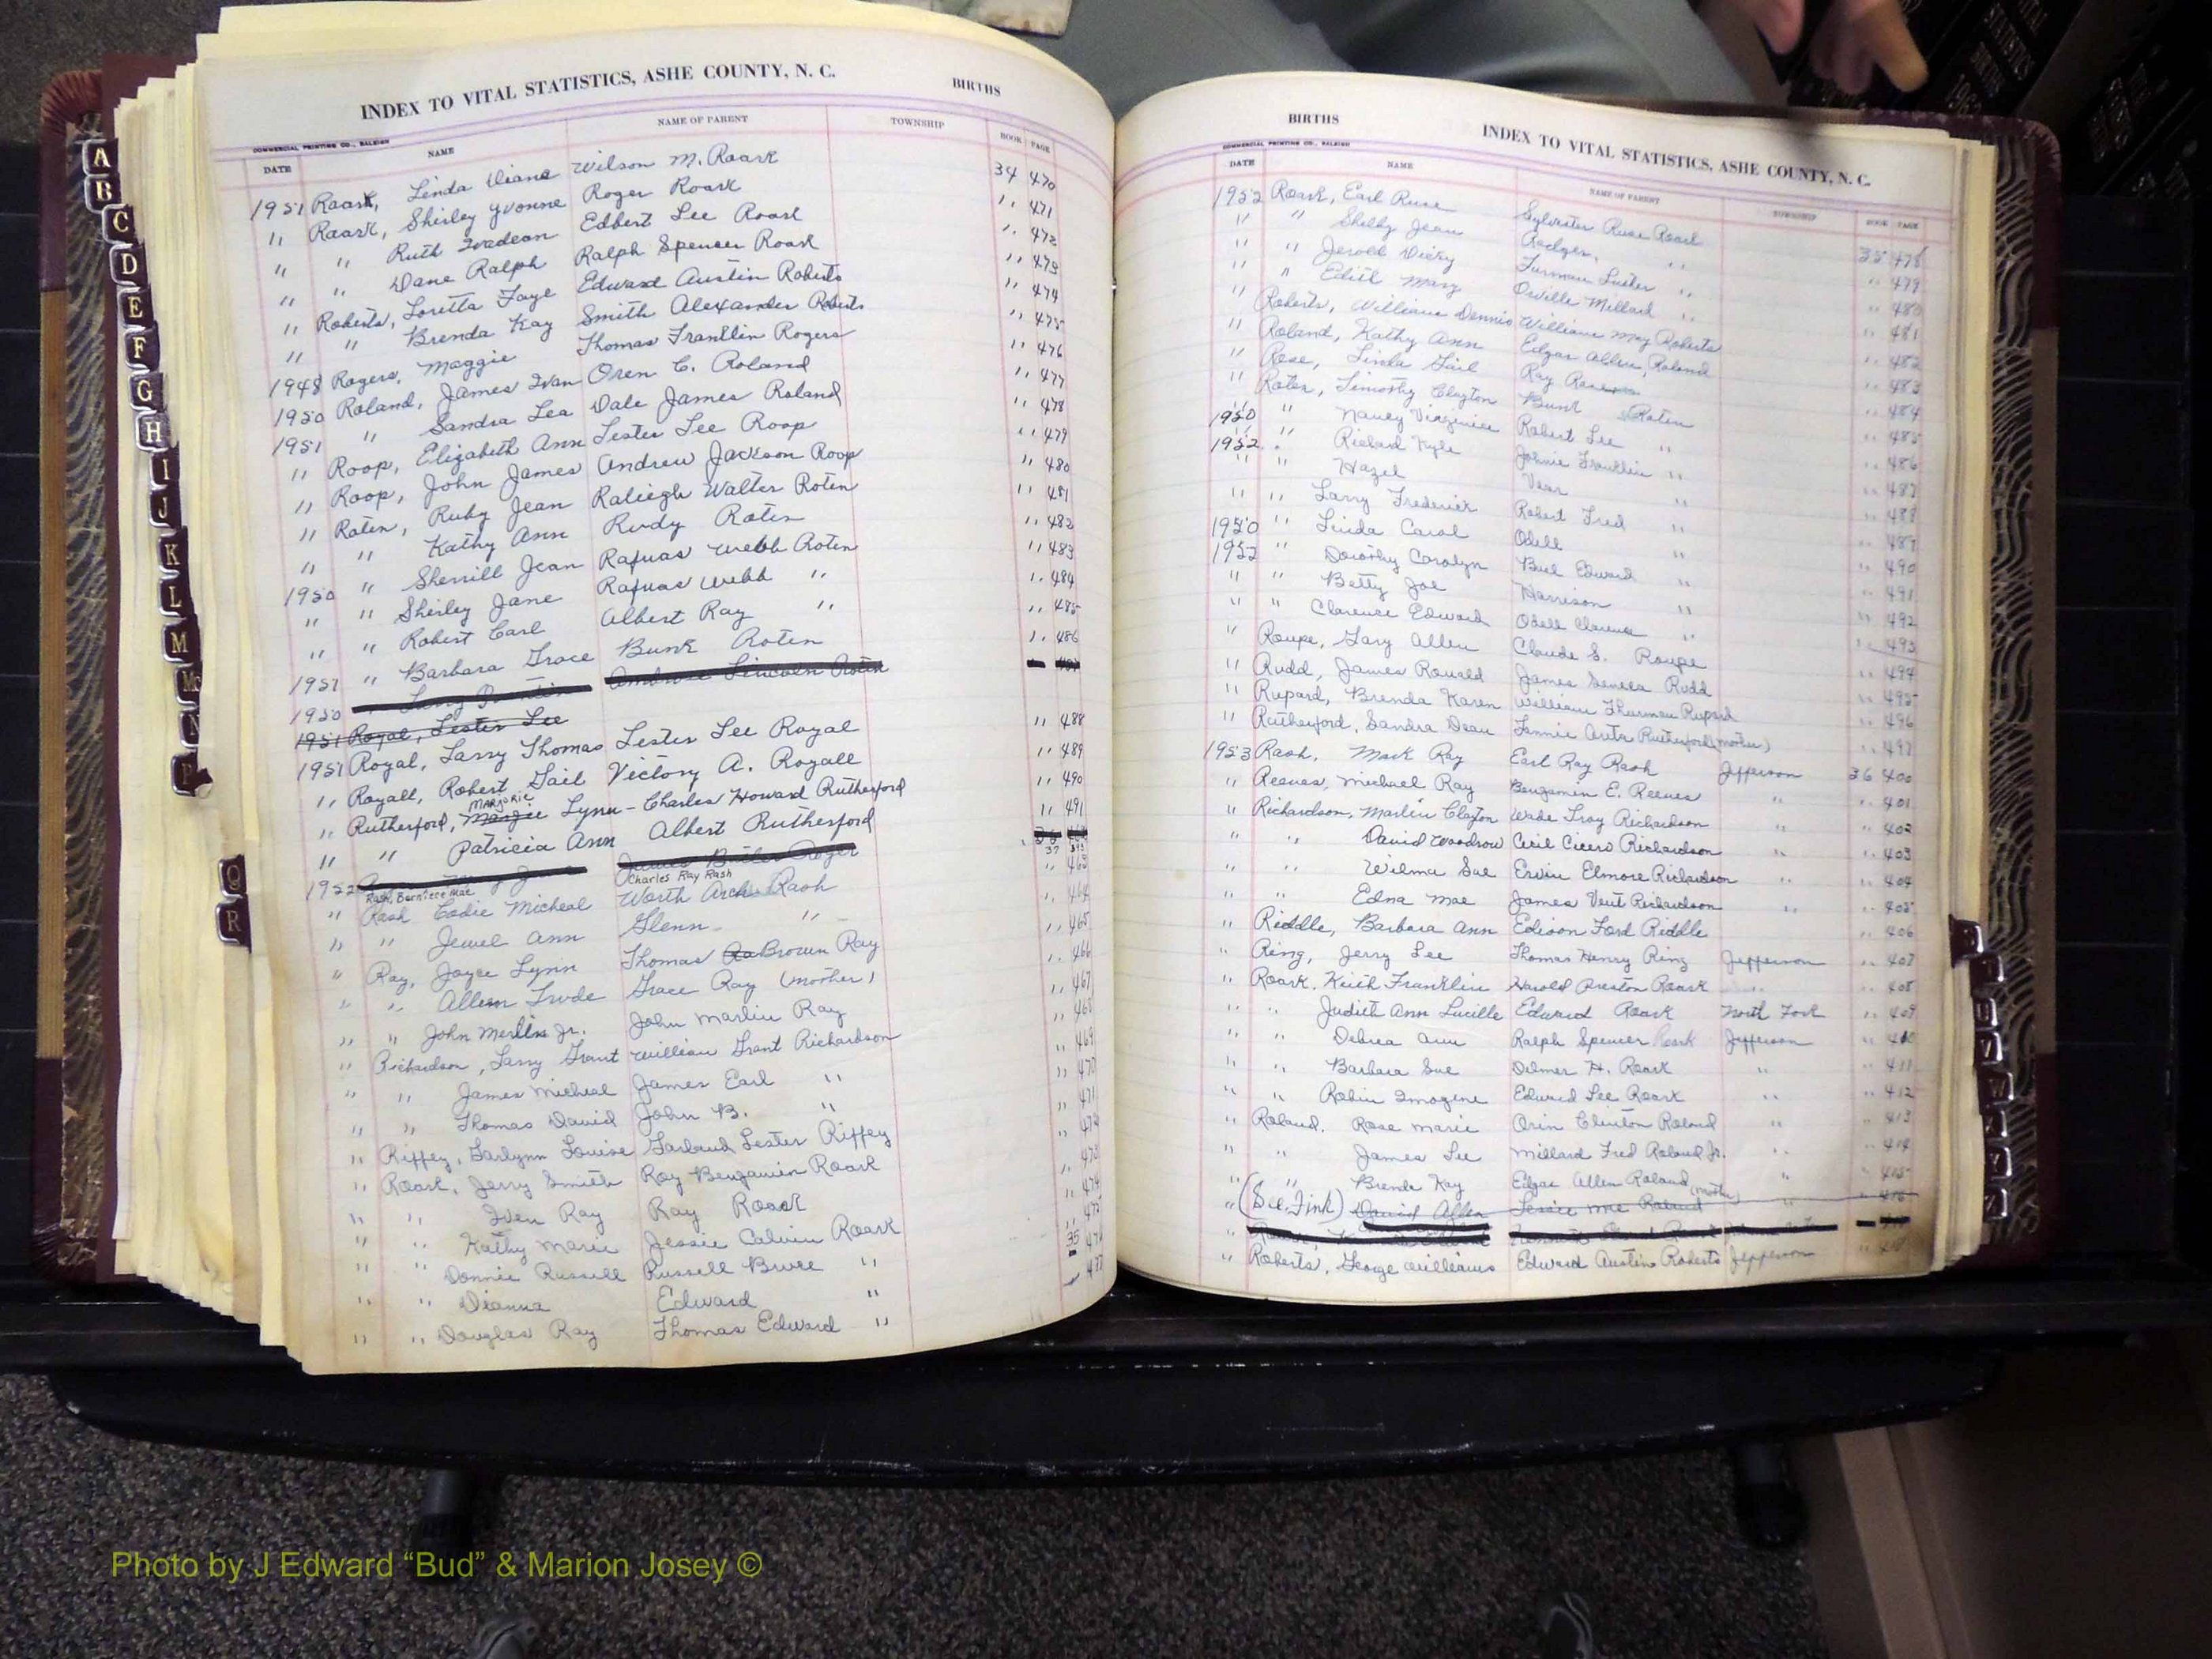 INDEX TO VITAL STATISTICS, ASHE COUNTY, N. C. BIRTHS
COMMERCIAL PRINTING CO., RALEIGH
DATE NAME NAME OF PARENT TOWNSHIP BOOK PAGE
1951 Roark, Linda Diane Wilson M. Roark 34 470
" Roark, Shirley Yvonne Roger Roark " 471
" " Ruth Ivadean Edbert Lee Roark " 472
" " Dane Ralph Ralph Spencer Roark " 473
" Roberts, Loretta Faye Edward Austin Roberts " 474
" " Brenda Kay Smith Alexander Roberts " 475
1948 Rogers, Maggie Thomas Franklin Rogers " 476
1950 Roland, James Ivan Oren C. Roland " 477
1951 " Sandra Lea Dale James Roland " 478
" Roop, Elizabeth Ann Lester Lee Roop " 479
" Roop, John James Andrew Jackson Roop " 480
" Roten, Ruby Jean Raliegh Walter Roten " 481
" " Kathy Ann Rudy Roten " 482
1950 " Sherrill Jean Rafuas Webb Roten " 483
" " Shirley Jane Rafuas Webb " " 484
" " Robert Carl Albert Ray " " 485
1951 " Barbara Grace Bunk Roten " 486
1950 Ambrose Lincoln Roten
1951 Royal, Lester Lee
1951 Royal, Larry Thomas Lester Lee Royal " 488
" Royall, Robert Gail Victory A. Royall " 489
MARJORIE
" Rutherford, Margie Lynn - Charles Howard Rutherford " 490
" " Patricia Ann Albert Rutherford " 491
1952
Rash, Berniece Mae Charles Ray Rash 37
" Rash Eddie Micheal Worth Arch Rash " 463
" " Jewel Ann Glenn " " 464
" Ray, Joyce Lynn Thomas Brown Ray " 465
" " Allen Trude Grace Ray (mother) " 466
" " John Merlin Jr. John Marlin Ray " 467
" Richardson, Larry Grant William Grant Richardson " 468
" " James Micheal James Earl " " 469
" " Thomas David John B. " " 470
" Riffey, Garlynn Louise Garland Lester Riffey " 471
" Roark, Jerry Smith Roy Benjamin Roark " 472
" " Iven Ray Ray Roark " 473
" " Kathy Marie Jessie Calvin Roark " 474
" " Donnie Russell Russell Bruce " " 475
" " Dianna Edward " 35 476
" " Douglas Ray Thomas Edward " 477
BIRTHS INDEX TO VITAL STATISTICS, ASHE COUNTY, N. C.
COMMERCIAL PRINTING CO., RALEIGH
DATE NAME NAME OF PARENT TOWNSHIP BOOK PAGE
1952 Roark, Earl Ruse Sylvester Ruse Roark 35 478
" " Shelby Jean Rodger " " 479
" " Jerold Dicky Furman Luther " " 480
" " Edith Mary Orville Millard " " 481
" Roberts, William Dennis William May Roberts " 482
" Roland, Kathy Ann Edgar Allen Roland " 483
" Rose, Linda Gail Ray Rose " 484
" Roten, Timothy Clayton Bunk Roten " 485
1950 " Nancy Virginia Robert Lee " " 486
1952 " Richard Kyle Johnie Franklin " " 487
" " Hazel " " 488
" " Larry Frederick Robert Fred " " 489
1950 " Linda Carol Odell " " 490
1952 " Dorothy Carolyn Buel Edward " " 491
" " Betty Joe Harrison " " 492
" " Clarence Edward Odell Clarence " " 493
" Roupe, Gary Allen Claude S. Roupe " 494
" Rudd, James Ronald James Seneca Rudd " 495
" Rupard, Brenda Karen William Thurman Rupard " 496
" Rutherford, Sandra Dean Fannie Rutherford (mother) " 497
1953 Rash, Mark Ray Earl Ray Rash Jefferson 36 400
" Reeves, Michael Ray Benjamin E. Reeves " " 401
" Richardson, Marlin Clayton Wade Troy Richardson " 402
" " David Woodrow Cecil Cicero Richardson " " 403
" " Wilma Sue Ervin Elmore Richardson " 404
" " Edna Mae James Vent Richardson " " 405
" Riddle, Barbara Ann Edison Ford Riddle " 406
" Ring, Jerry Lee Thomas Henry Ring Jefferson " 407
" Roark, Keith Franklin Harold Preston Roark " " 408
" " Judith Ann Lucille Edward Roark North Fork " 409
" " Debrea Ann Ralph Spencer Roark Jefferson " 410
" " Barbara Sue Delmer H. Roark " " 411
" " Robin Imogene Edward Lee Roark " " 412
" Roland, Rose Marie Orin Clinton Roland " " 413
" " James Lee Millard Fred Roland Jr. " " 414
" " Brenda Kay Edgar Allen Roland " " 415
" (See Fink) David Allen Jessie Mae Roland (mother) " " 416
" Roberts, George Williams Edward Austin Roberts Jefferson " 418
A
B
C
D
E
F
G
H
I
J
K
L
M
Mc
N
P
Q
R
Photo by J Edward “Bud” & Marion Josey ©